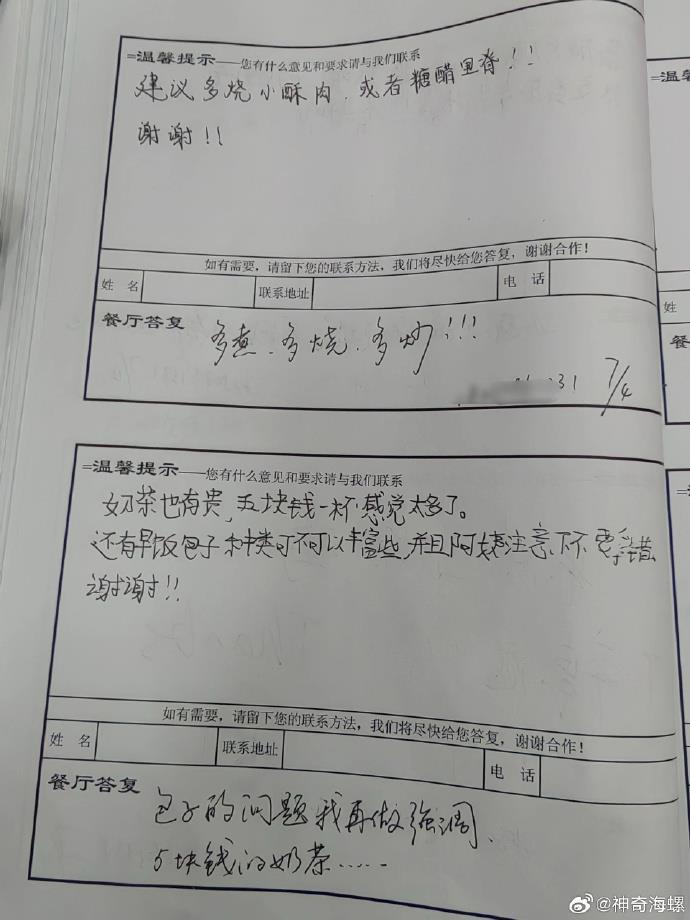 温馨提示——您有什么意见和要求请与我们联系
建议多烧小酥肉、或者糖醋里脊!!
谢谢!!
如有需要，请留下您的联系方法，我们将尽快给您答复，谢谢合作！
姓 名 联系地址 电 话
餐厅答复
多煮、多烧、多炒!!!
31 7/4
温馨提示——您有什么意见和要求请与我们联系
奶茶也有贵，五块钱一杯感觉太多了。
还有早饭包子种类可不可以丰富些，并且阿姨注意下不要弄错
谢谢!!
如有需要，请留下您的联系方法，我们将尽快给您答复，谢谢合作！
姓 名 联系地址 电 话
餐厅答复
包子的问题我再做强调、
5块钱的奶茶……
姓
餐
@神奇海螺